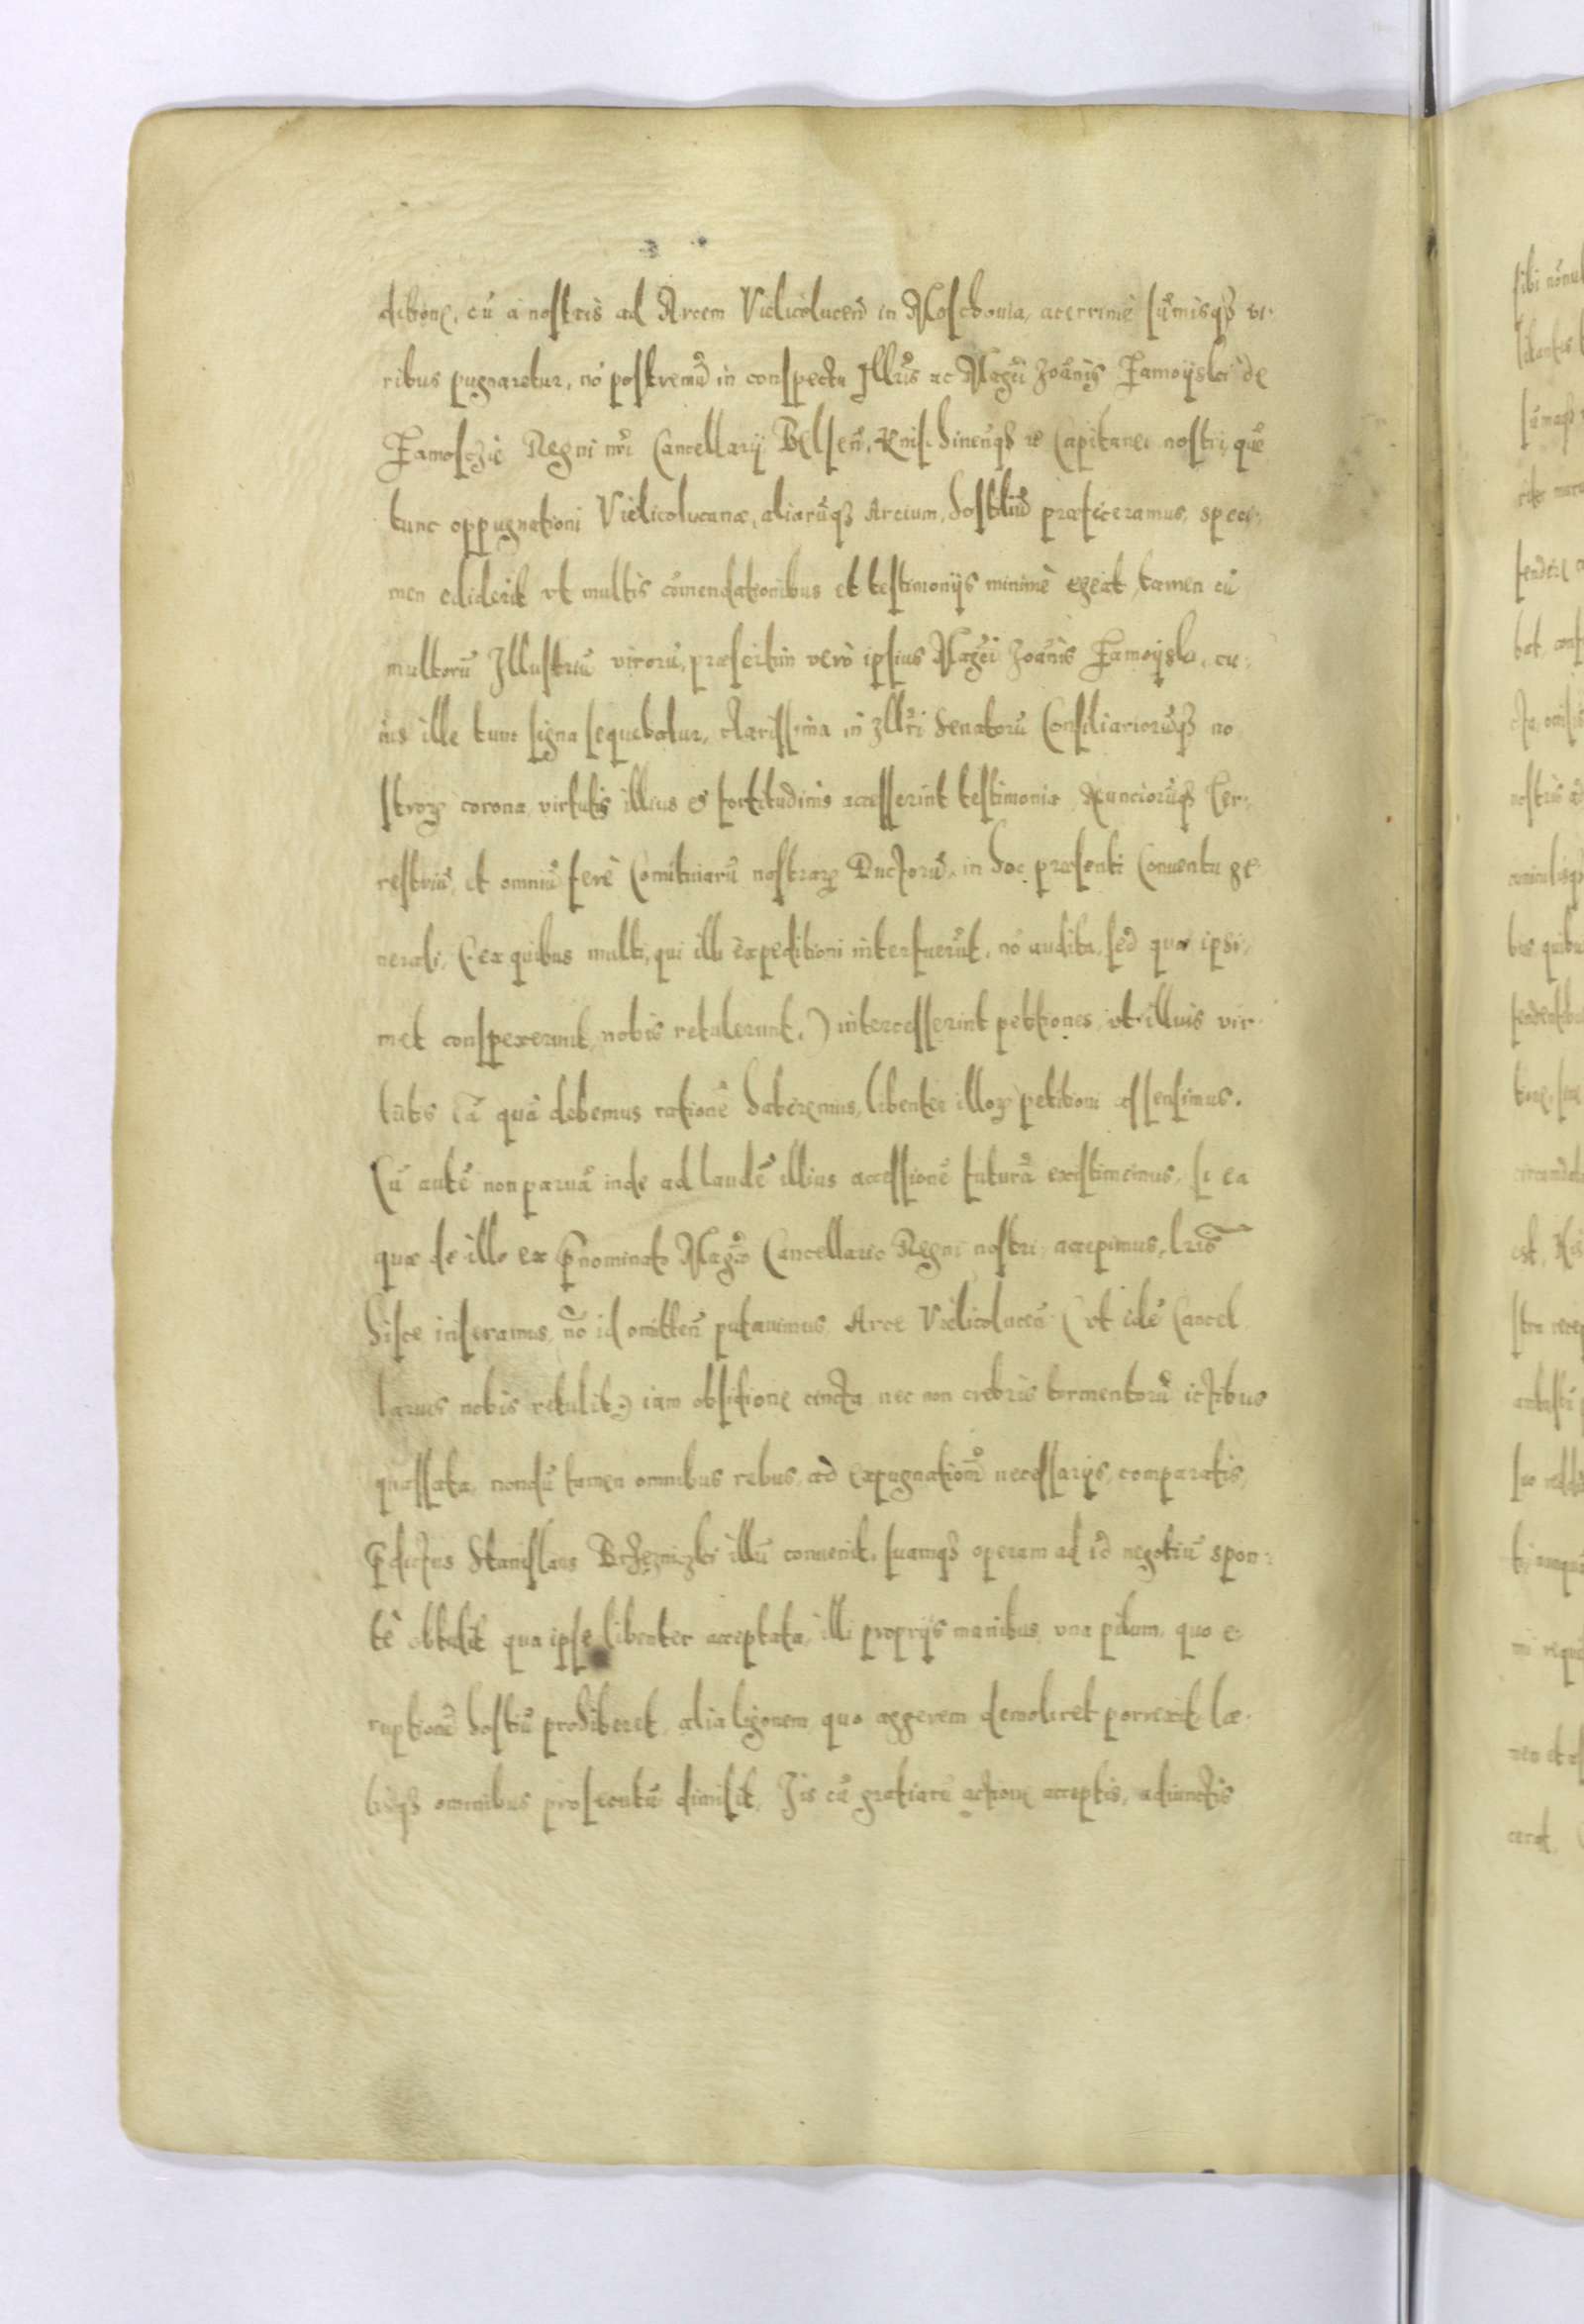 ditione, cū a nostris ad Arcem Vielicolucen̄ in Moschouia, acerrimè sūmisqꝫ vi-
ribus pugnaretur, nō postremū in conspectu Illrīs ac Magci Joānis Zamoyski de
Zamosczie Regni nrī Cancellarij Belsen̄, Knischinen̄qꝫ &c Capitanei nostri, quē
tunc oppugnationi Vielicolucanæ, aliarūqꝫ Arcium, hostiliū præfeceramus, speci-
men ediderit vt multis cōmendationibus et testimonijs minimè egeat, tamen cū
multorū Illustriū virorū, præsertim verò ipsius Magci Joānis Zamoyski, cu-
ius ille tunc signa sequebatur, clarissima in Illrī Senatorū Consiliariorūqꝫ no
stroꝝ corona, virtutis illius et fortitudinis accesserint testimonia Nunciorūqꝫ Ter-
restriū, et omniū ferè Comitiuarū nostraꝝ Ductorū, in hoc præsenti Conuentu ge-
nerali, (ex quibus multi, qui illi expeditioni interfuerūt, nō audita, sed quæ ipsi-
met conspexerunt, nobis retulerunt,) intercesserint petitiones, vt illius vir-
tutis eā quā debemus rationē haberemus, libenter illoꝝ petitioni assensimus.
Cū autē non paruā inde ad laudē illius accessionē futurā existimemus, si ea
quæ de illo ex p̄nominato Magco Cancellario Regni nostri, accepimus, lris̄
hisce inseramus, nō id omitten̄ putauimus Arce Vielicolucen̄ (vt idē Cancel
larius nobis retulit) iam obsidione cincta nec non crebris tormentorū ictibus
quassata, nondū tamen omnibus rebus, ad expugnationē necessarijs, comparatis,
p̄dictus Stanislaus Brzeznizki illū conuenit, suamqꝫ operam ad id negotiū spon-
tè obtulit qua ipse libenter acceptata, illi proprijs manibus, vna pilum, quo e-
ruptionē hostiū prohiberet, alia ligonem, quo aggerem demoliret porrexit, læ-
tisqꝫ ominibus prosecutū dimisit, Jis cū gratiarū actione acceptis, adiunctis